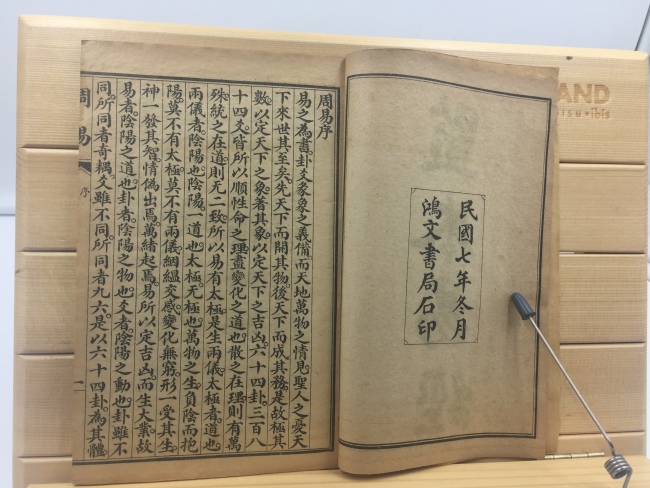 民國七年冬月
鴻文書局石印
周易序
易之為書卦爻彖象之義備而天地萬物之情見聖人之憂天
下來世其至矣先天下而開其物後天下而成其務是故極其
數以定天下之象著其象以定天下之吉凶六十四卦三百八
十四爻皆所以順性命之理盡變化之道也散之在理則有萬
殊統之在道則无二致所以易有太極是生兩儀太極者道也
兩儀者陰陽也陰陽一道也太極无極也萬物之生負陰而抱
陽莫不有太極莫不有兩儀絪縕交感變化無窮形一受其生
神一發其智情偽出焉萬緒起焉易所以定吉凶而生大業故
易者陰陽之道也卦者陰陽之物也爻者陰陽之動也卦雖不
同所同者奇耦爻雖不同所同者九六是以六十四卦為其體
周易 序 一
AND
isu • ibis